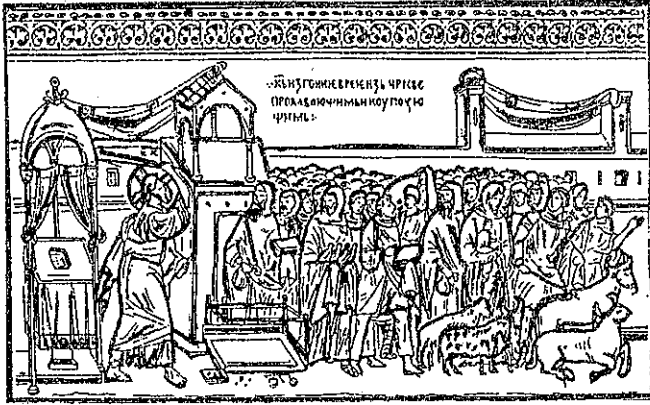 Хь изгони евреие изь чркве
продавоющимь и коупоую
щимь :·